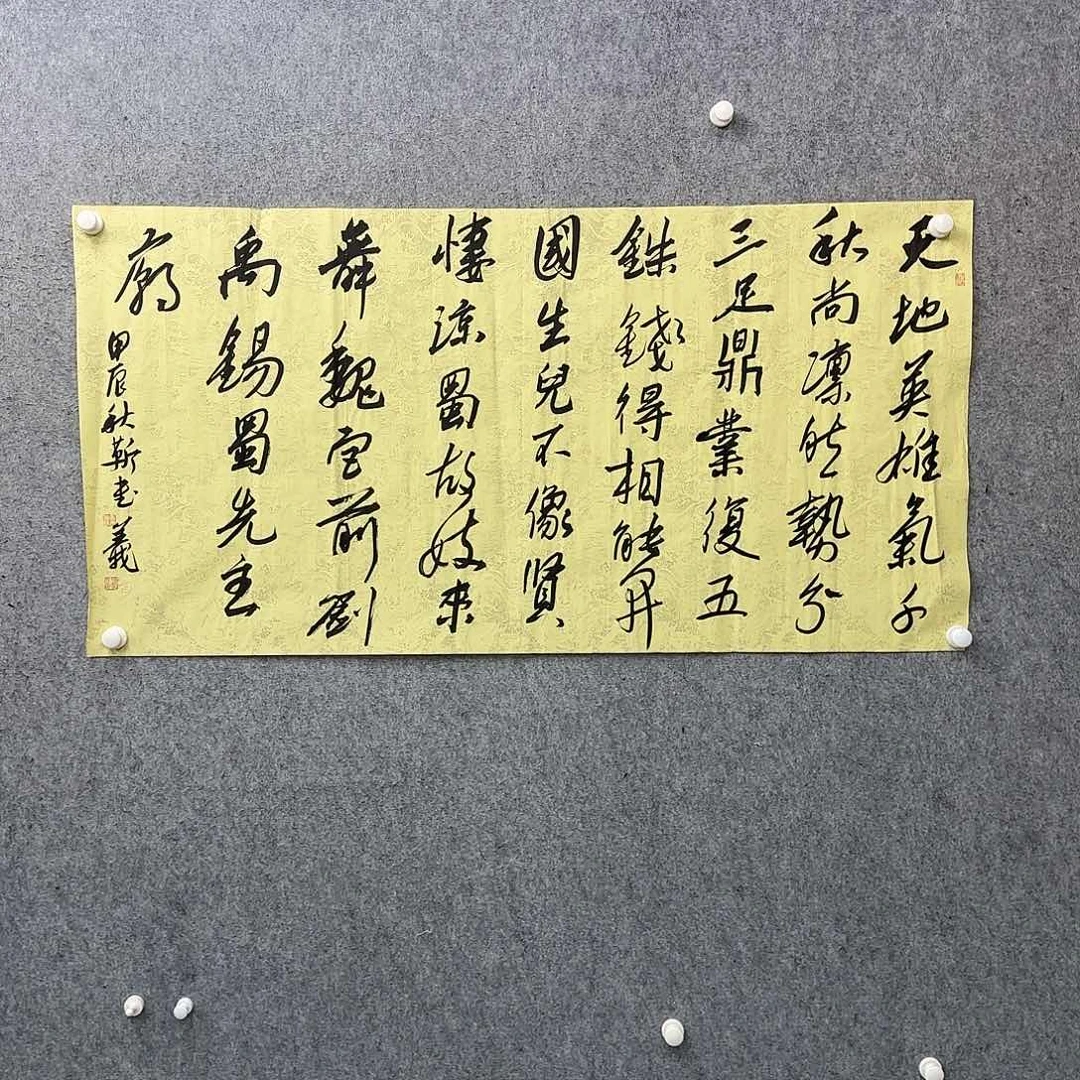 天地英雄氣千
秋尚凛然勢分
三足鼎業復五
銖錢得相能開
國生兒不像賢
悽涼蜀故妓來
舞魏宫前劉
禹錫蜀先主
廟
甲辰秋靳書義